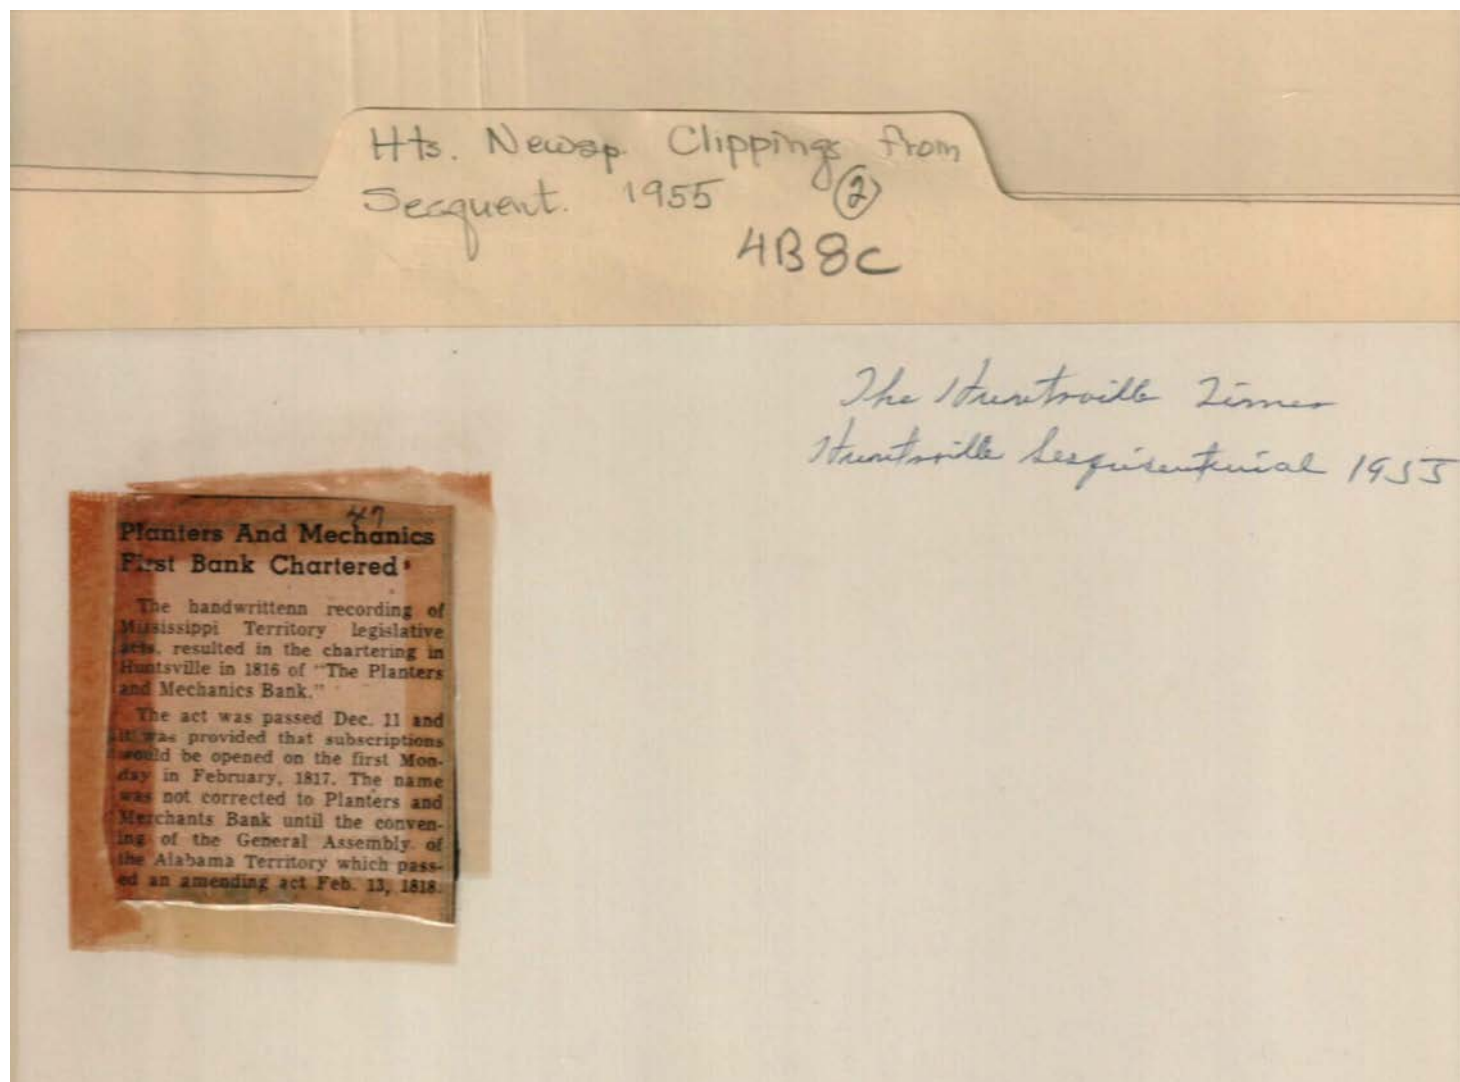 Hts. Newsp. Clippings from
Secquent. 1955 2
4B8C
The Huntsville Times
Huntsville Sesquicentenial 1955
47
Planters And Mechanics
First Bank Chartered
The handwrittenn recording of
Mississippi Territory legislative
acts, resulted in the chartering in
Huntsville in 1816 of "The Planters
and Mechanics Bank."
The act was passed Dec. 11 and
it was provided that subscriptions
would be opened on the first Mon-
day in February, 1817. The name
was not corrected to Planters and
Merchants Bank until the conven-
ing of the General Assembly of
the Alabama Territory which pass-
ed an amending act Feb. 13, 1818.